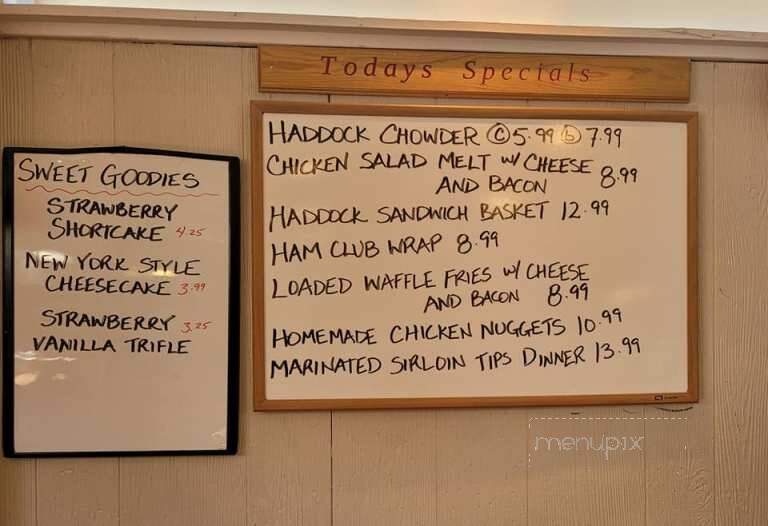 Todays Specials
SWEET GOODIES
STRAWBERRY
SHORTCAKE 4.25
NEW YORK STYLE
CHEESECAKE 3.99
STRAWBERRY 3.25
VANILLA TRIFLE
HADDOCK CHOWDER ⓒ 5.99 ⓑ 7.99
CHICKEN SALAD MELT W/ CHEESE
AND BACON 8.99
HADDOCK SANDWICH BASKET 12.99
HAM CLUB WRAP 8.99
LOADED WAFFLE FRIES W/ CHEESE
AND BACON 8.99
HOMEMADE CHICKEN NUGGETS 10.99
MARINATED SIRLOIN TIPS DINNER 13.99
menupix